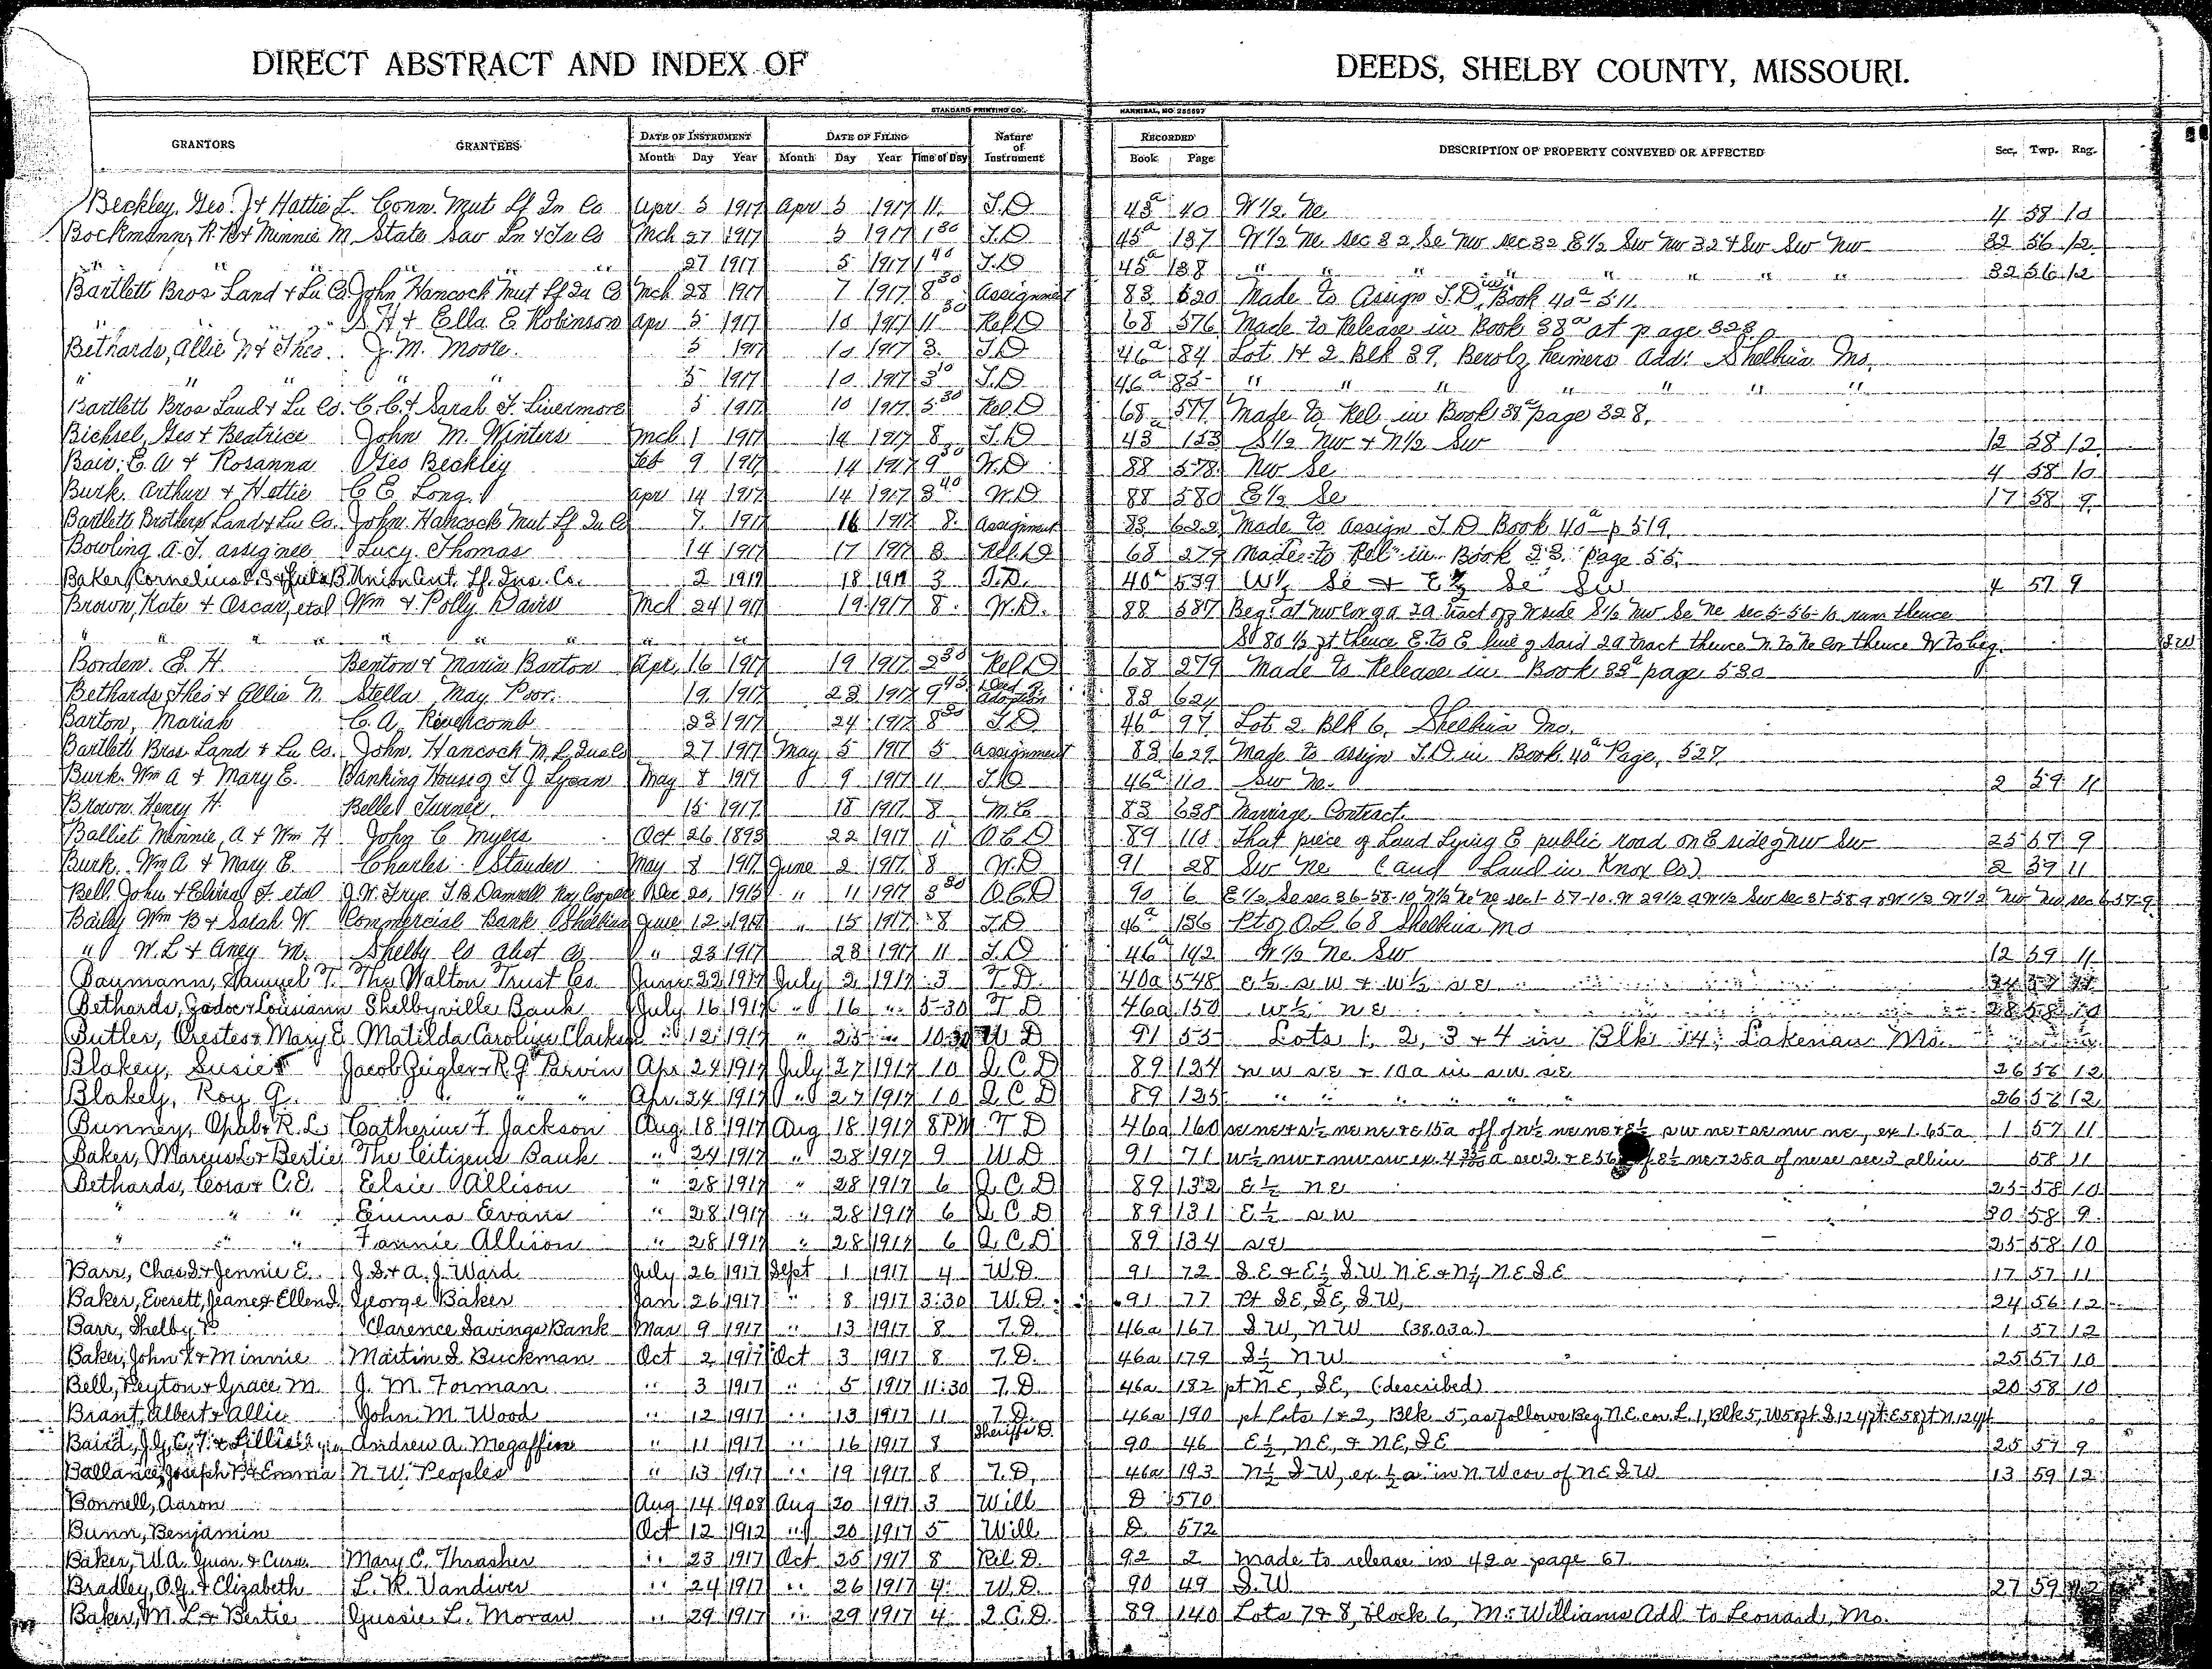 DIRECT ABSTRACT AND INDEX OF DEEDS, SHELBY COUNTY, MISSOURI.
STANDARD PRINTING CO. HANNIBAL, MO
GRANTORS GRANTEES DATE OF INSTRUMENT DATE OF FILING Nature of Instrument RECORDED DESCRIPTION OF PROPERTY CONVEYED OR AFFECTED Sec. Twp. Rng.
Month Day Year Month Day Year Time of Day Book Page
Beckley, Geo. J + Hattie L. Conn. Mut Lf In Co Apr 5 1917 Apr 5 1917 11 T.D. 45a 40 W 1/2 Ne 4 58 10
Bockmann, R. B + Minnie M. State Sav Ln + Tr Co Mch 27 1917 5 1917 1 30 T.D 45a 137 W 1/2 Ne sec 32 Se Nw sec 32 E 1/2 Sw Nw 32 + Sw Sw Nw 32 56 12
" " " " 27 1917 5 1917 1 40 T.D 45a 138 " " " " " " " " 32 56 12
Bartlett Bros Land + Ln Co. John Hancock Mut Lf In Co Mch 28 1917 7 1917 8 30 Assignment 83 620 Made to Assign T.D. in Book 40a 511
" " " S H + Ella E Robinson Apr 5 1917 10 1917 11 30 Rel D 68 576 Made to Release in Book 38a at page 328
Bethards, Allie N + Theo. J. M. Moore. 5 1917 10 1917 3 T.D 46a 84 Lot 1 + 2 Blk 39. Berolzheimers Add. Shelbina Mo.
" " " " " 5 1917 10 1917 3 10 T.D 46a 85 " " " " " " "
Bartlett Bros Land + Ln Co. C. C. + Sarah F. Livermore 5 1917 10 1917 5 30 Rel. D 68 577 Made to Rel in Book 38a page 328.
Bichsel, Geo + Beatrice John M. Winters Mch 1 1917 14 1917 8 T.D 43 153 S 1/2 Nw + N 1/2 Sw 12 58 12
Bair, E. A + Rosanna Geo Beckley Feb 9 1917 14 1917 9 30 W.D. 88 578 Nw Se 4 58 10
Burk. Arthur + Hattie C E Long. Apr 14 1917 14 1917 3 40 W.D 88 580 E 1/2 Se 17 58 9
Bartlett Brothers Land + Ln Co. John Hancock Mut Lf In Co 7 1917 16 1917 8. Assignment 83 622 Made to Assign T.D Book 40a p 519.
Bowling A. J. assignee Lucy Thomas 14 1917 17 1917 8 Rel. D 68 279 Made to Rel in Book 23 page 55.
Baker, Cornelius P.S + Jula B. Union Cent. Lf. Ins. Co. 2 1917 18 1917 3 T.D. 40a 539 W 1/2 Se + E 1/2 Se Sw 4 57 9
Brown, Kate + Oscar, etal Wm + Polly Davis Mch 24 1917 19 1917 8. W.D. 88 587 Beg. at Nw Cor of a 2a tract off N side S 1/2 Nw Se Ne sec 5-56-10 runs thence
" " " " " " " " " So 80 1/2 ft thence E. to E line of said 2a tract thence N to Ne Cor thence W to beg.
Borden. E. H. Benton + Maria Barton Apr. 16 1917 19 1917 2 30 Rel D 68 279 Made to Release in Book 33a page 530
Bethards Theo + Allie N. Stella May Poor. 19 1917 23 1917 9 45 Deed of Adoption 83 624
Barton, Mariah C. A. Rivercomb 23 1917 24 1917 8 30 T.D 46a 97 Lot 2 Blk 6. Shelbina Mo.
Bartlett Bros Land + Ln Co. John. Hancock M. L. Ins Co 27 1917 May 5 1917 5 Assignment 83 629 Made to assign T.D. in Book 40a Page, 527
Burk. Wm A + Mary E. Banking House of T J Lyean May 8 1917 9 1917 11 T.D 46a 110 Sw Ne. 2 59 11
Brown. Henry H. Belle Turner. 15 1917 18 1917 8 M.C. 83 638 Marriage Contract.
Balliet Minnie, A + Wm H John C Myers Oct 26 1893 22 1917 11 Q C D 89 110 That piece of Land Lying E public road on E side of Nw Sw 25 57 9
Burk. Wm A + Mary E. Charles Stauder May 8 1917 June 2 1917 8 W.D 91 28 Sw Ne (and Land in Knox Co) 2 59 11
Bell. John + Elvira J. etal J. W. Frye. T. B. Damrell Roy Cooper Dec 20, 1915 " 11 1917 3 30 Q C D 90 6 E 1/2 Se sec 36-58-10 N 1/2 Ne Ne sec 1-57-10. W 29 1/2 a W 1/2 Sw sec 31-58-9 + W 1/2 N 1/2 Nw Nw sec 6-57-9
Baily Wm B + Sarah W. Commercial Bank Shelbina June 12 1917 " 15 1917 8 T.D 46a 136 Pt of O.L. 68 Shelbina Mo
" W. L + Aney M. Shelby Co Abst Co " 23 1917 28 1917 11 T.D 46a 142 W 1/2 Ne Sw 12 59 11
Baumann, Samuel T. The Walton Trust Co. June 22 1917 July 2 1917 3 T.D. 40a 548 E 1/2 SW + W 1/2 SE
Bethards, Jador + Lousiann Shelbyville Bank July 16 1917 " 16 " 5-30 T D 46a 150 W 1/2 NE 28 58 10
Butler, Orestes + Mary E Matilda Caroline Clarkson " 12 1917 " 25 " 10 30 W D 91 55 Lots 1, 2, 3 + 4 in Blk 14; Lakenan Mo.
Blakey, Susie Jacob Zeigler + R G Parvin Apr 24 1917 July 27 1917 10 Q. C. D 89 124 NW SE + 10a in SW SE 26 58 12
Blakely, Roy G. " " " Apr. 24 1917 " 27 1917 10 Q C D 89 125 " " " " " " 26 58 12
Bunney, Opal + R. L. Catherine F. Jackson Aug 18 1917 Aug 18 1917 8 PM T D 46a 160 SE NE + S 1/2 NE NE + E 15a off of N 1/2 NE NE + E 1/2 SW NE + SE NW NE, ex 1.65a 1 57 11
Baker, Marcus L. + Bertie The Citizens Bank " 24 1917 " 28 1917 9 W D 91 71 W 1/2 NW + NW SW ex. 4 a sec 2 + E 56 of E 1/2 NE + 28a of NE SE sec 3 all in 58 11
Bethards, Cora + C. E. Elsie Allison " 28 1917 " 28 1917 6 Q. C. D 89 132 E 1/2 NE 25 58 10
" " " Emma Evans " 28 1917 " 28 1917 6 Q. C. D 89 131 E 1/2 SW 30 58 9
" " " Fannie Allison " 28 1917 " 28 1917 6 Q. C. D 89 134 SE 25 58 10
Barr, Chas S + Jennie E. J. S. + A. J. Ward July 26 1917 Sept 1 1917 4 W.D. 91 72 S.E + E 1/2 S.W N.E + N 1/2 N E S E 17 57 11
Baker, Everett, Jeane + Ellend. George Baker Jan 26 1917 " 8 1917 3:30 W.D. 91 77 Pt SE, SE, SW, 24 56 12
Barr, Shelby P. Clarence Savings Bank Mar 9 1917 " 13 1917 8 T.D. 46a 167 S W, N W (38.03a.) 1 57 12
Baker, John X + Minnie Martin S. Buckman Oct 2 1917 Oct 3 1917 8 T.D. 46a 179 S 1/2 N W 25 57 10
Bell, Peyton + Grace M. J. M. Forman " 3 1917 " 5 1917 11:30 T.D. 46a 182 pt N E, S E, (described) 20 58 10
Brant, Albert + Allie John M. Wood " 12 1917 " 13 1917 11 T.D. 46a 190 pt Lots 1 & 2, Blk 5, as follows Beg N.E. cor L. 1, Blk 5, W 58 ft. S. 124 ft. E 58 ft N 124 ft
Baird, J. G, C. T. + Lillie Andrew A. Megaffin " 11 1917 " 16 1917 8 Sheriffs D. 90 46 E 1/2, N E, + N E, S E 25 57 9
Ballance, Joseph P. + Emma N. W. Peoples " 13 1917 " 19 1917 8 T.D. 46a 193 N 1/2 S W, ex 1/2 a in N W cor of N E S W 13 59 12
Bonnell, Aaron Aug 14 1908 Aug 20 1917 3 Will D 570
Bunn, Benjamin Oct 12 1912 " 20 1917 5 Will D. 572
Baker, W.A. Guar. & Cura. Mary C. Thrasher " 23 1917 Oct 25 1917 8 Rel D. 92 2 made to release in 42a page 67
Bradley, O.G. + Elizabeth L. R. Vandiver " 24 1917 " 26 1917 4 W.D. 90 49 S.W. 27 59 12
Baker, M. L. + Bertie Gussie L. Moran " 29 1917 " 29 1917 4 Q.C.D. 89 140 Lots 7 & 8, Block 6, McWilliams Add to Leonard, Mo.